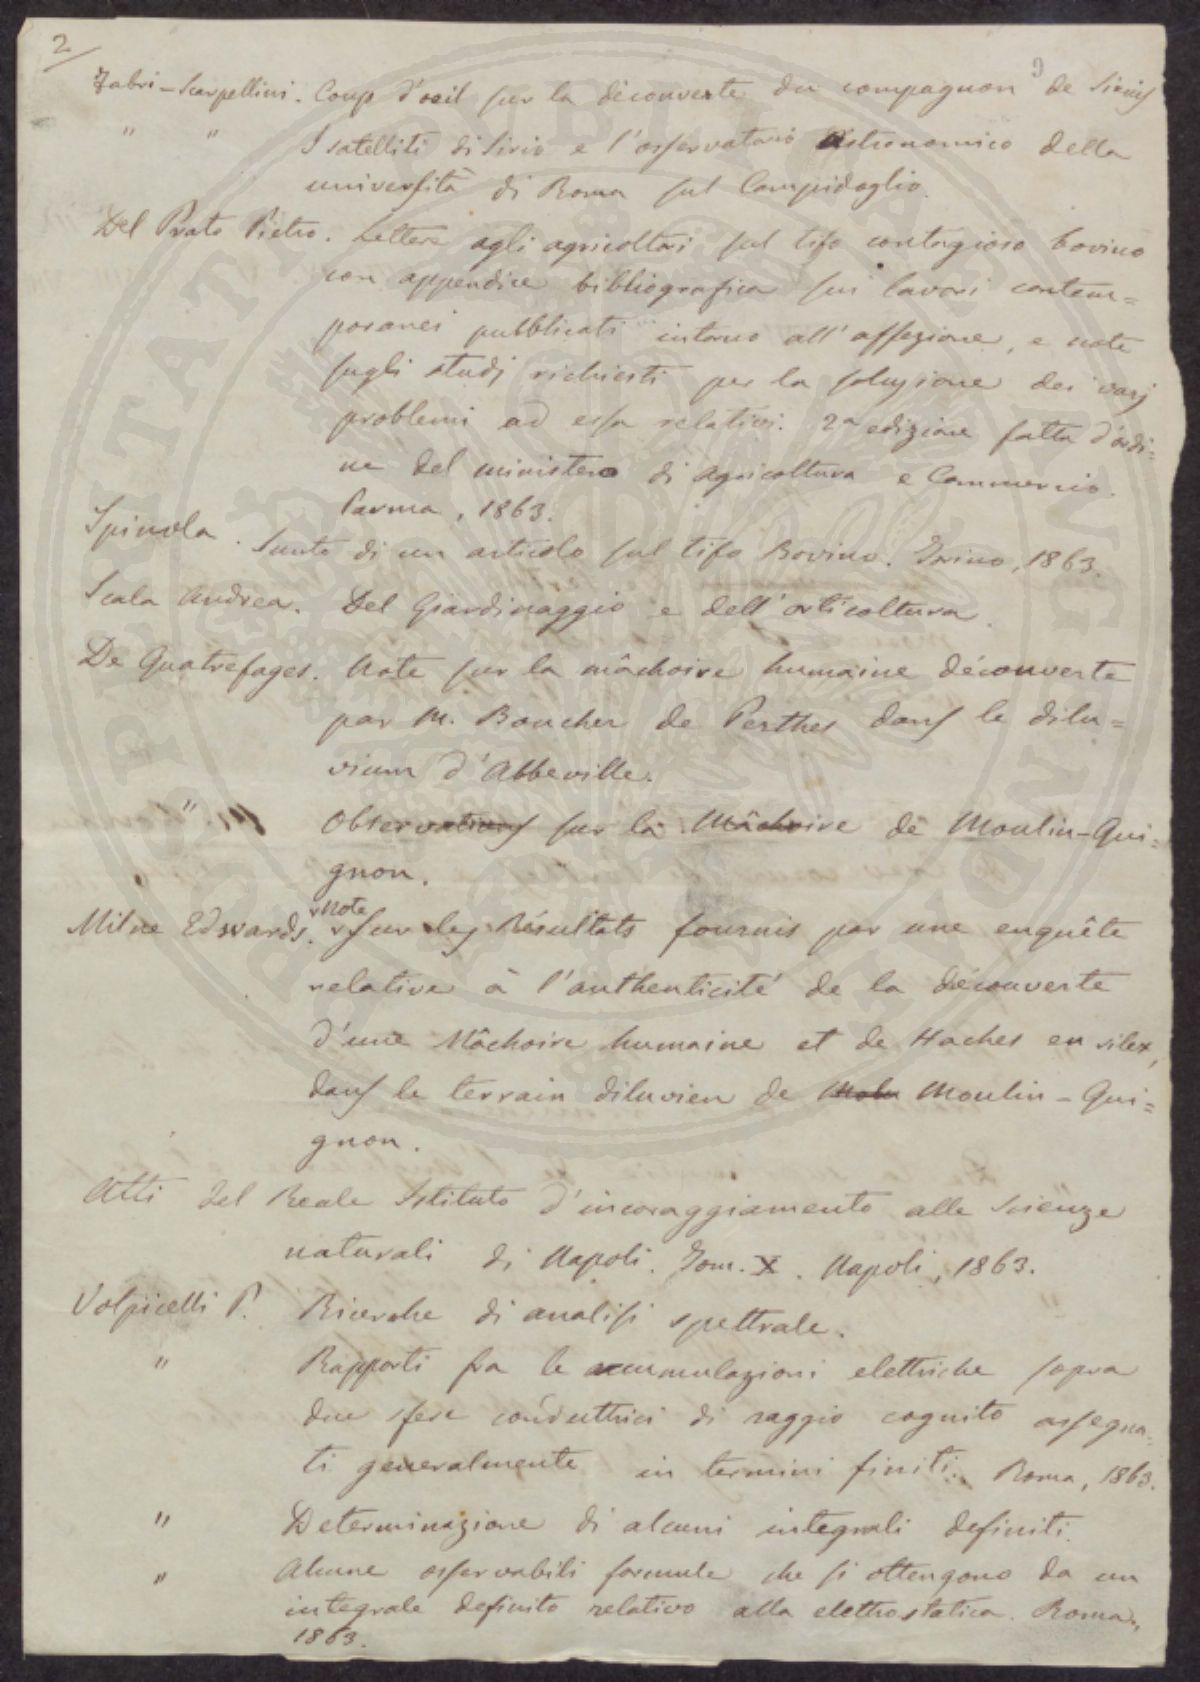 2
9
Fabri-Scarpellini. Coup d'oeil sur la découverte du compagnon de Sirius
" " I satelliti di Sirio e l'osservatorio Astronomico della
università di Roma sul Campidoglio.
Del Prato Pietro. Lettere agli agricoltori sul tifo contagioso bovino
con appendice bibliografica sui lavori contem=
poranei pubblicati intorno all'affezione, e note
sugli studj richiesti per la soluzione dei varj
problemi ad essa relativi. 2a edizione fatta d'ordi=
ne del ministero di Agricoltura e Commercio.
Parma, 1863.
Spinola. Sunto di un articolo sul tifo Bovino. Torino, 1863.
Scala Andrea. Del Giardinaggio e dell'orticoltura.
De Quatrefages. Note sur la mâchoire humaine découverte
par M. Boucher de Perthes dans le dilu=
vium d'Abbeville.
" Observations sur la Mâchoire de Moulin-Qui=
gnon.
Note
Milne Edwards. sur les Résultats fournis par une enquête
relative à l'authenticité de la découverte
d'une Mâchoire humaine et de Haches en silex,
dans le terrain diluvien de Moulin-Qui=
gnon.
Atti del Reale Istituto d'incoraggiamento alle Scienze
naturali di Napoli. Tom. X. Napoli, 1863.
Volpicelli P. Ricerche di analisi spettrale.
" Rapporti fra le accumulazioni elettriche sopra
due sfere conduttrici di raggio cognito assegna=
ti generalmente in termini finiti. Roma, 1863.
" Determinazione di alcuni integrali definiti.
" Alcune osservabili formule che si ottengono da un
integrale definito relativo alla elettrostatica. Roma,
1863.